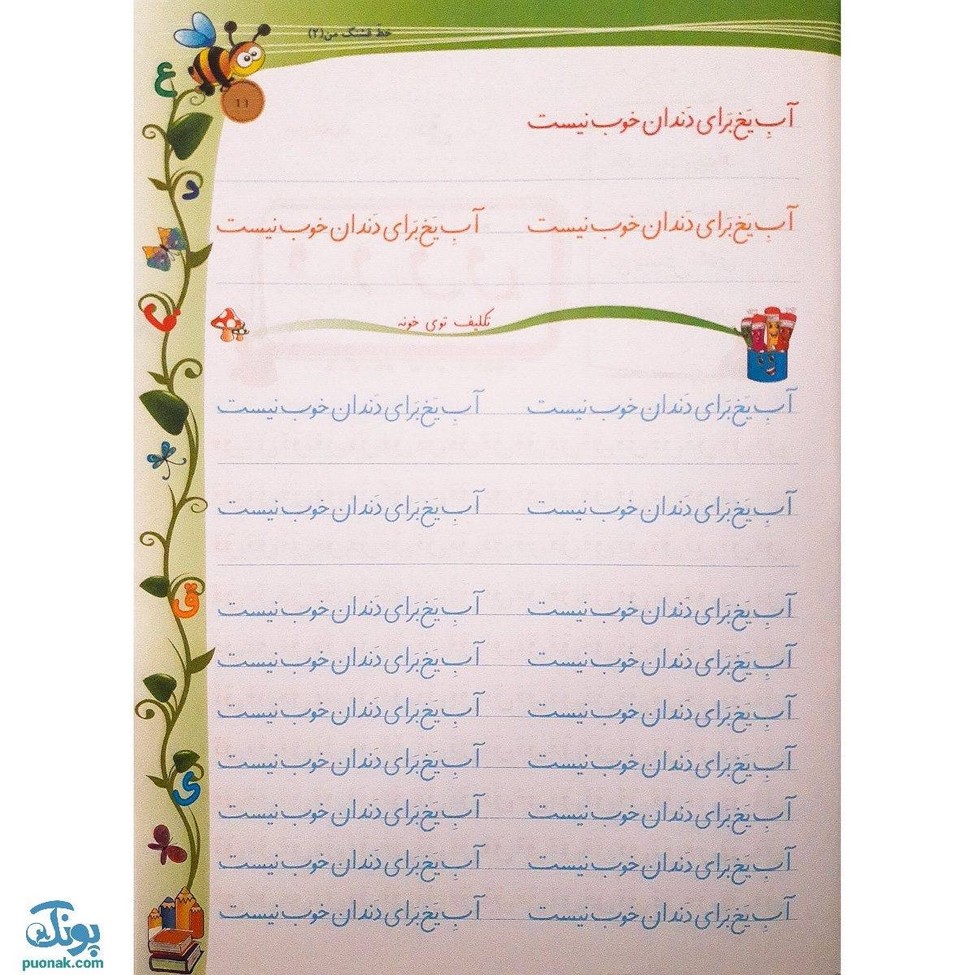 خطّ قشنگ من (۲)
ع
۱۱
آبِ یَخ بَرای دَندان خوب نیست
د
آبِ یَخ بَرای دَندان خوب نیست آبِ یَخ بَرای دَندان خوب نیست
تکلیف توی خونه
آبِ یَخ بَرای دَندان خوب نیست آبِ یَخ بَرای دَندان خوب نیست
آبِ یَخ بَرای دَندان خوب نیست آبِ یَخ بَرای دَندان خوب نیست
ق
آبِ یَخ بَرای دَندان خوب نیست آبِ یَخ بَرای دَندان خوب نیست
آبِ یَخ بَرای دَندان خوب نیست آبِ یَخ بَرای دَندان خوب نیست
آبِ یَخ بَرای دَندان خوب نیست آبِ یَخ بَرای دَندان خوب نیست
آبِ یَخ بَرای دَندان خوب نیست آبِ یَخ بَرای دَندان خوب نیست
ی
آبِ یَخ بَرای دَندان خوب نیست آبِ یَخ بَرای دَندان خوب نیست
آبِ یَخ بَرای دَندان خوب نیست آبِ یَخ بَرای دَندان خوب نیست
آبِ یَخ بَرای دَندان خوب نیست آبِ یَخ بَرای دَندان خوب نیست
پونک
puonak.com